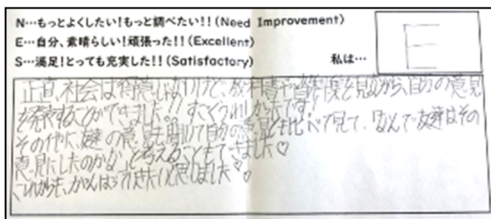 N…もっとよくしたい！もっと調べたい！！(Need Improvement)
E…自分、素晴らしい！頑張った！！(Excellent)
S…満足！とっても充実した！！(Satisfactory) 私は…
E
正直、社会は得意じゃないけど、教科書や資料集を見ながら、自分の意見
を発表することができました!! すごくうれしかったです!
その他に、友達の意見を聞いて自分の意見とも比べて見て、なんで友達はその
意見にしたのかな?と考えることもできました♡
これからも、がんばって行きたいと思いました♡